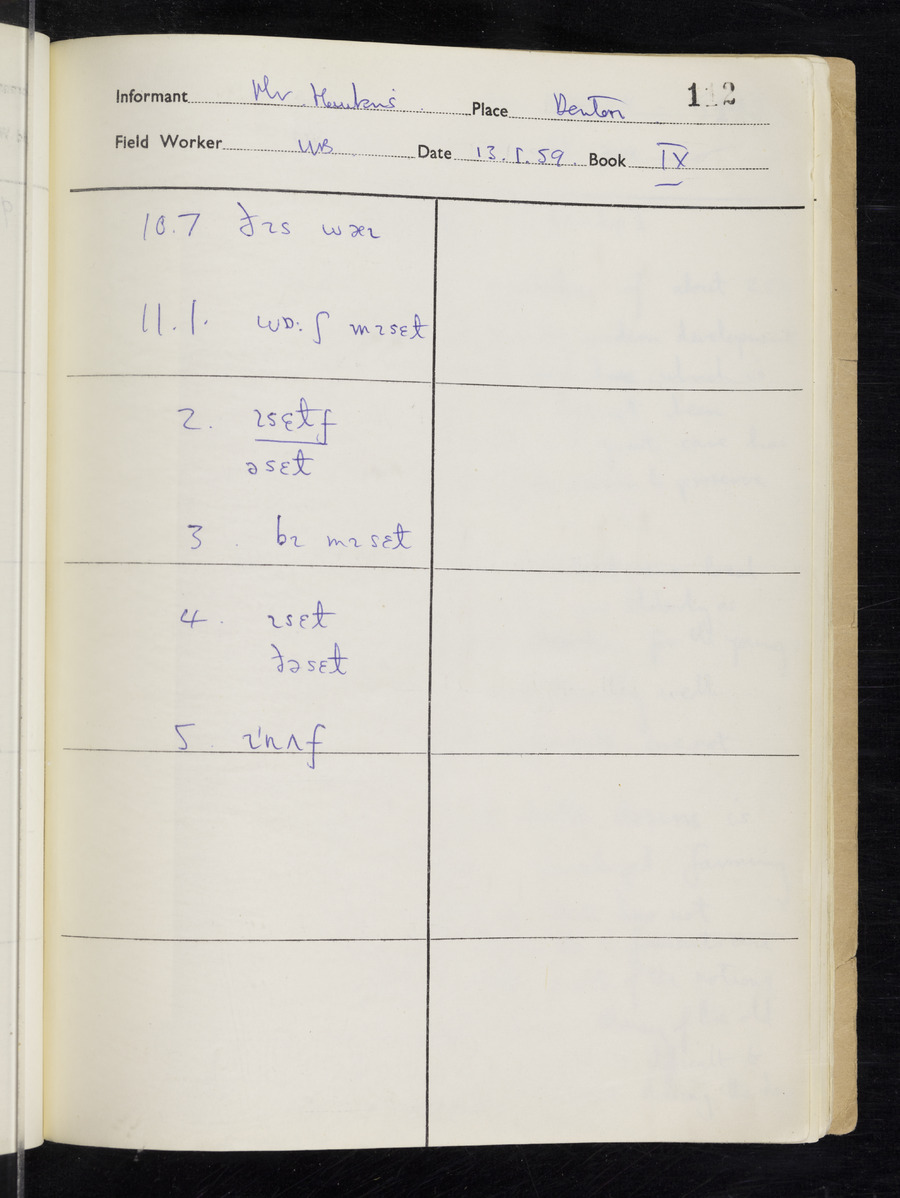 Informant Mr Hawkins Place Denton 112
Field Worker WB Date 13.5.59 Book IX
10.7 ðɪs wæɪ
11.1. wɒ:ʃ mɪsɛt
2. ɪsɛtf
əsɛt
3. bɪ mɪsɛt
4. ɪsɛt
ðəsɛt
5. ɪ'nʌf